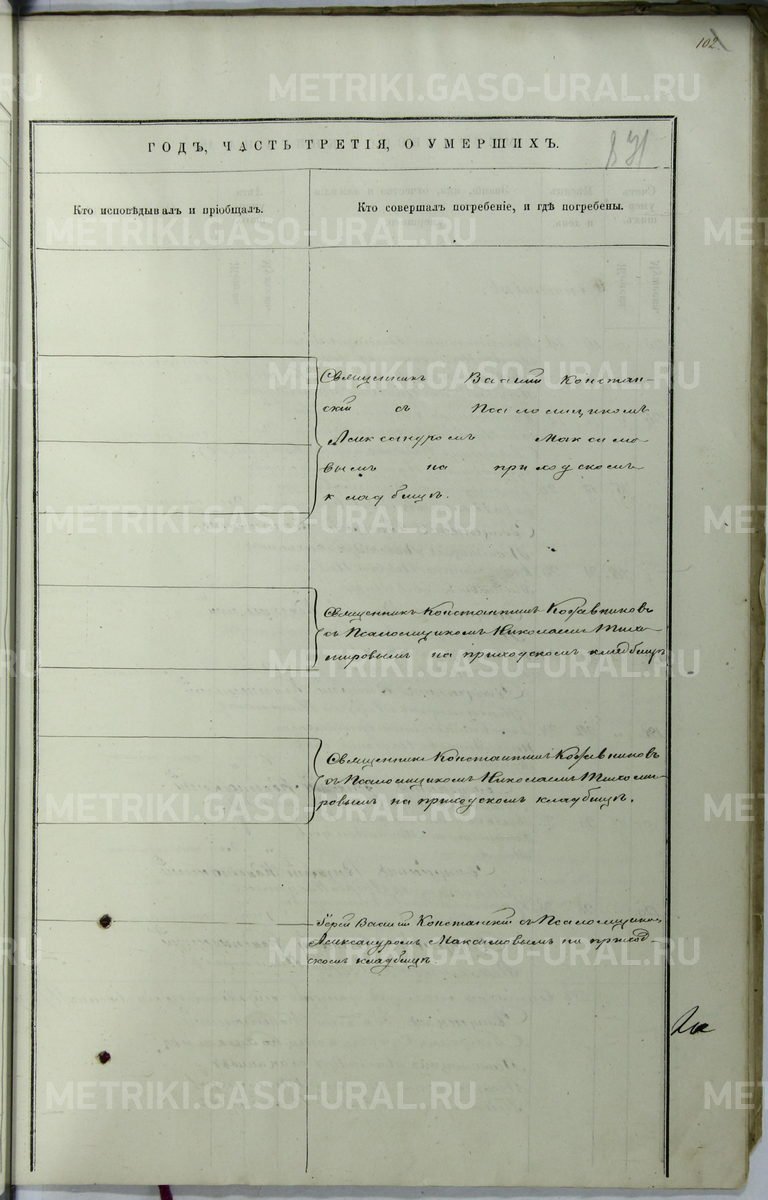 102
ГОДЪ, ЧАСТЬ ТРЕТІЯ, О УМЕРШИХЪ.
831
Кто исповѣдывалъ и пріобщалъ.
Кто совершалъ погребеніе, и гдѣ погребены.
Священникъ Василій Констан-
скій съ Псаломщикомъ
Александромъ Максимо-
вымъ на приходскомъ
кладбищѣ.
Священникъ Константинъ
съ Псаломщикомъ Николаемъ Тихо-
мировымъ на приходскомъ кладбищѣ
Священникъ Константинъ
съ Псаломщикомъ Николаемъ Тихоми-
ровымъ, на приходскомъ кладбищѣ.
Іерей Василій Констанскій съ Псаломщикомъ
Александромъ Максимовымъ на приход-
скомъ кладбищѣ.
METRIKI.GASO-URAL.RU